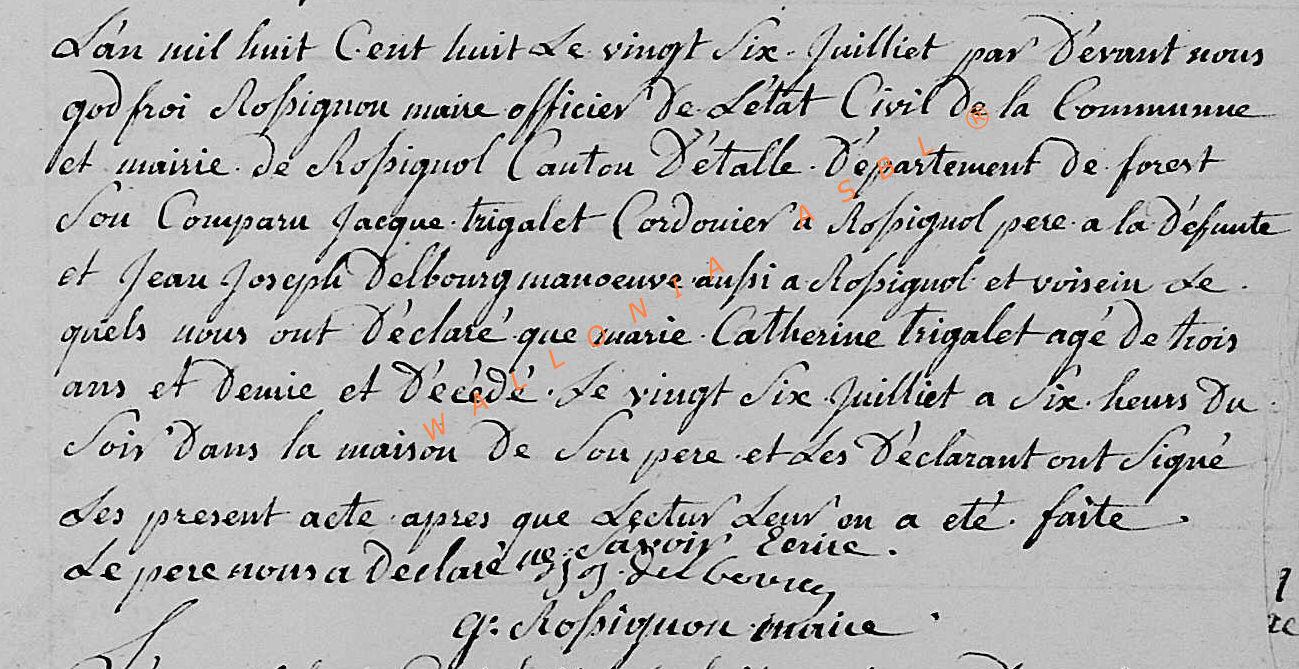 L'an mil huit Cent huit Le vingt Six Juilliet par Dévant nous
godfroi Rossignon maire officier De L'état Civil de la Communne
et mairie de Rossignol Canton D'étalle Département De forest
Son Comparu Jacque trigalet Cordonier a Rossignol pere a la Défunte
et Jean Joseph Delbourg manoeuve aussi a Rossignol et voisein Le
quels nous ont Déclaré que marie Catherine trigalet agé De trois
ans et Demie et Décédé Le vingt Six Juilliet a Six heurs Du
Soir Dans la maison De Son pere et Les Déclarant ont Signé
Les present acte apres que Lectur Leur en a eté faite
Le pere nous a Declaré ne Savoir Ecrire
g: Rossignon maire
WALLONIA ASBL ®